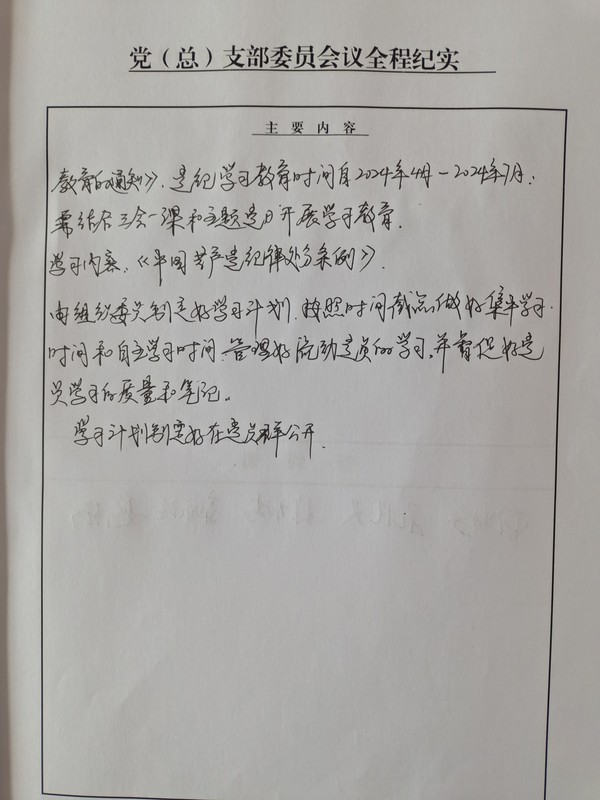 党（总）支部委员会议全程纪实
主要内容
教育的通知》. 党纪学习教育时间自2024年4月—2024年7月.
需结合三会一课和主题党日开展学习教育.
学习内容.《中国共产党纪律处分条例》.
由组织委员制定好学习计划. 按照时间截点做好集中学习.
时间和自主学习时间. 管理好流动党员的学习, 并督促好党
员学习的质量和笔记.
学习计划制定好在党员群公开.